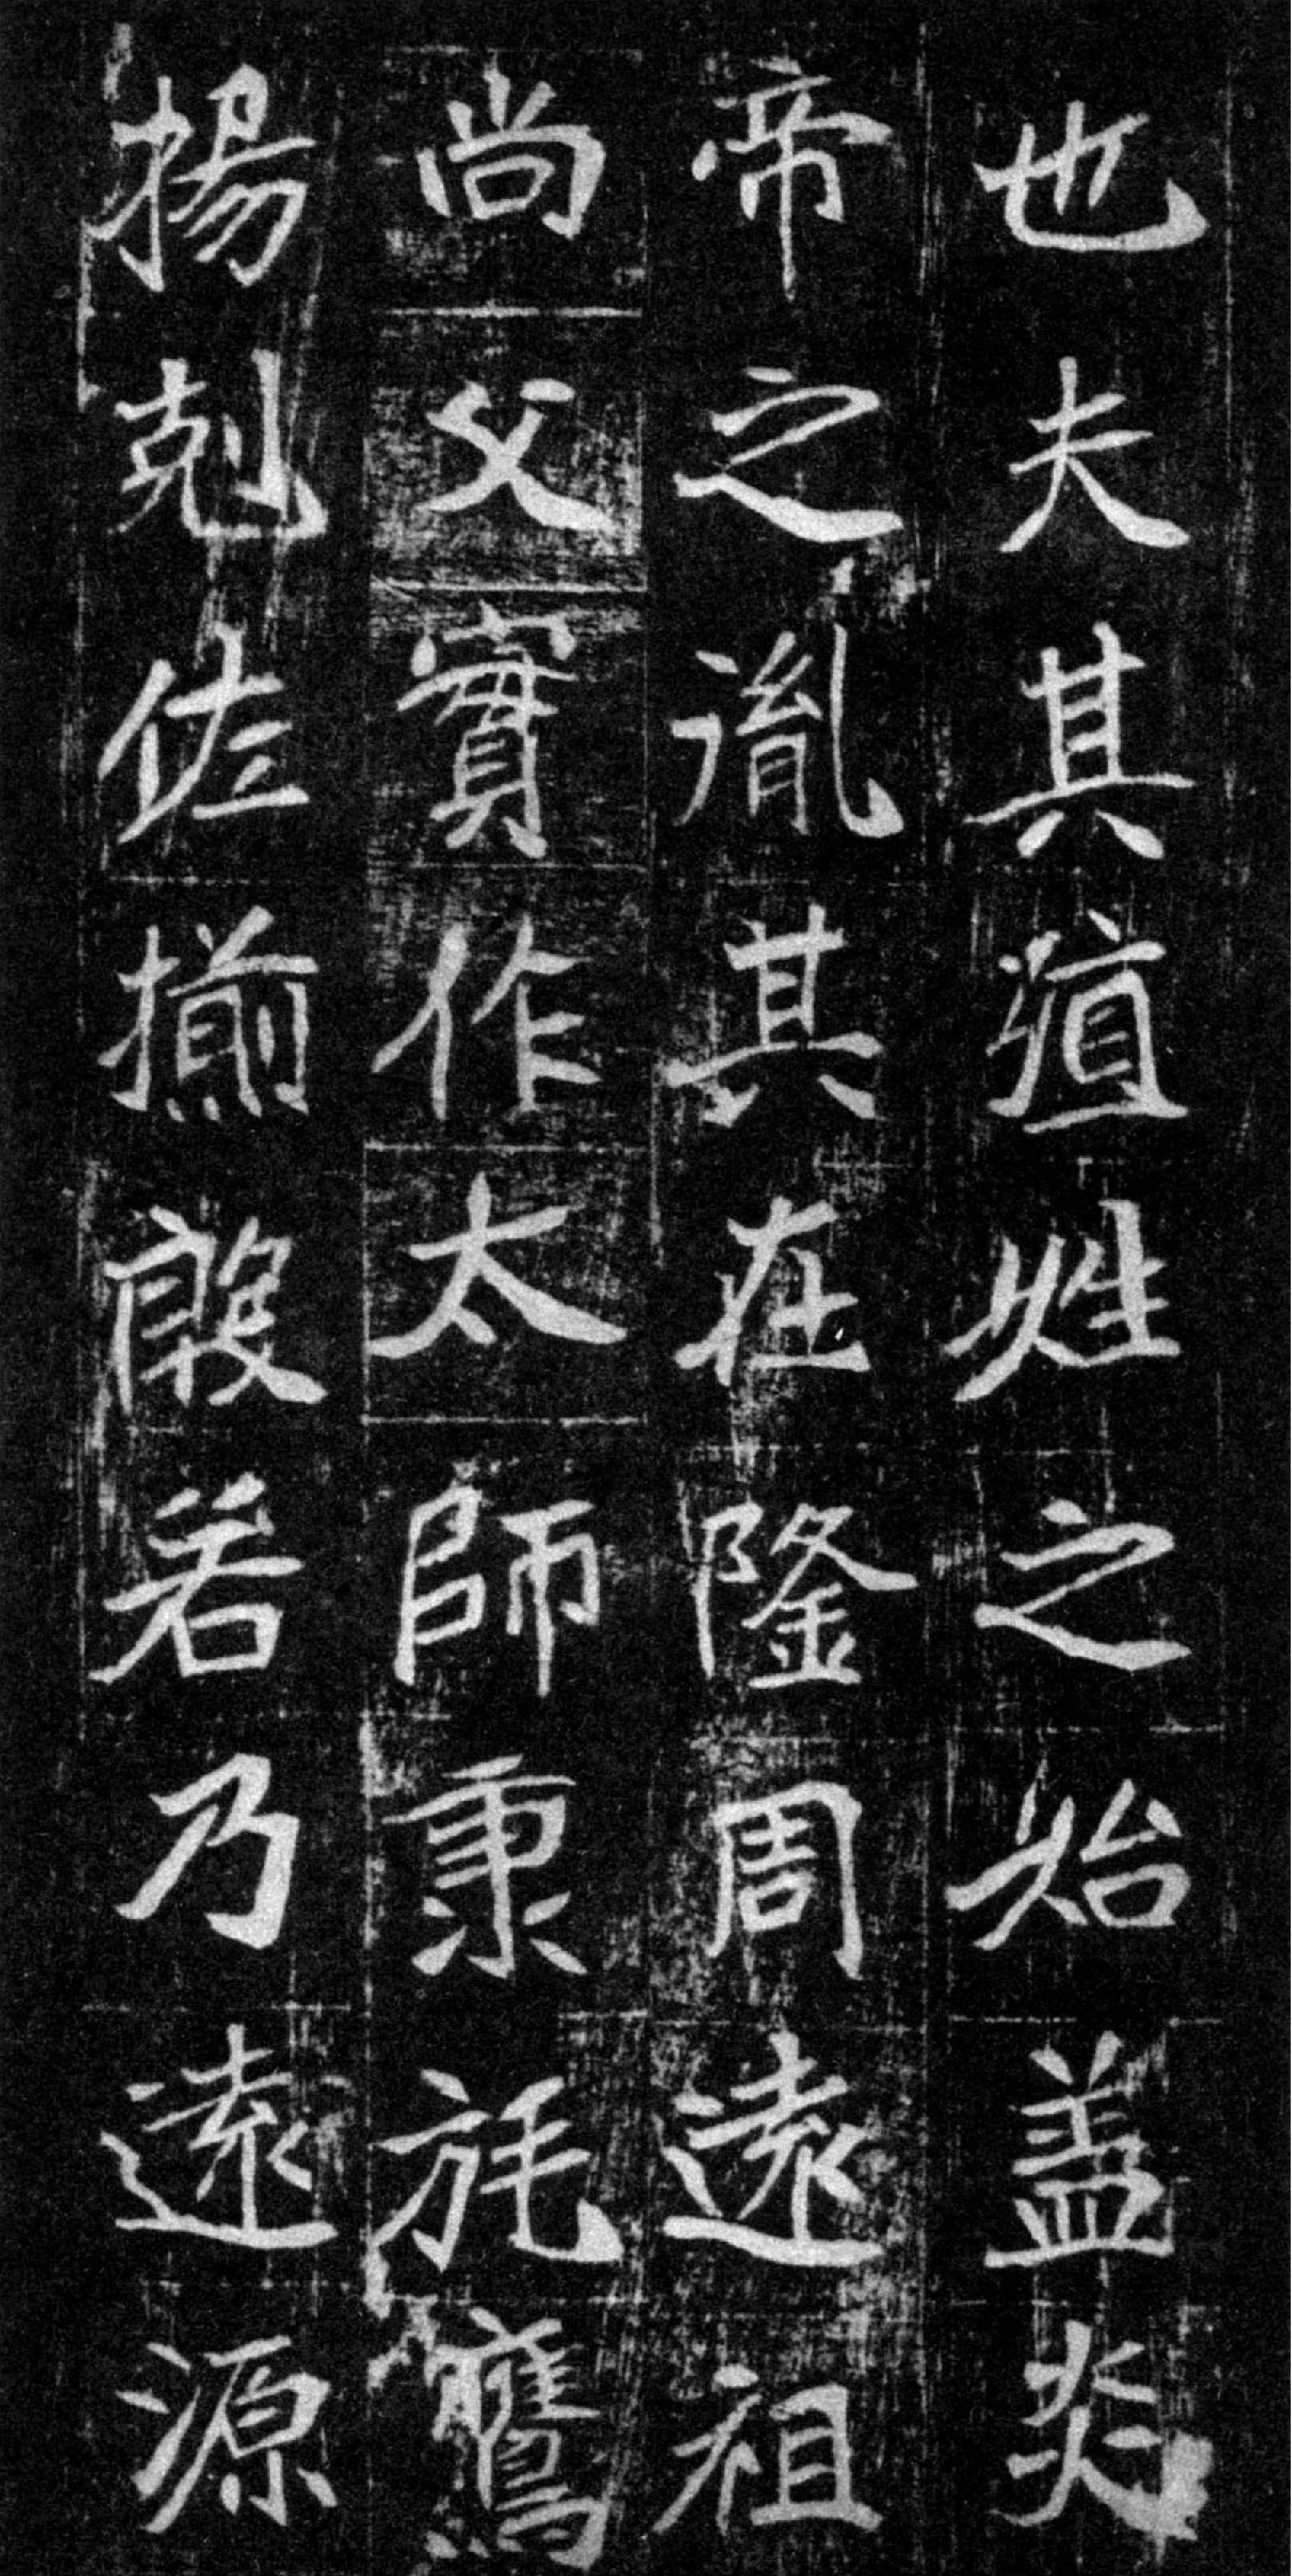 也夫其殖姓之始盖炎
帝之胤其在隆周遠祖
尚父實作太師秉旄鷹
揚剋佐揃殷若乃遠源